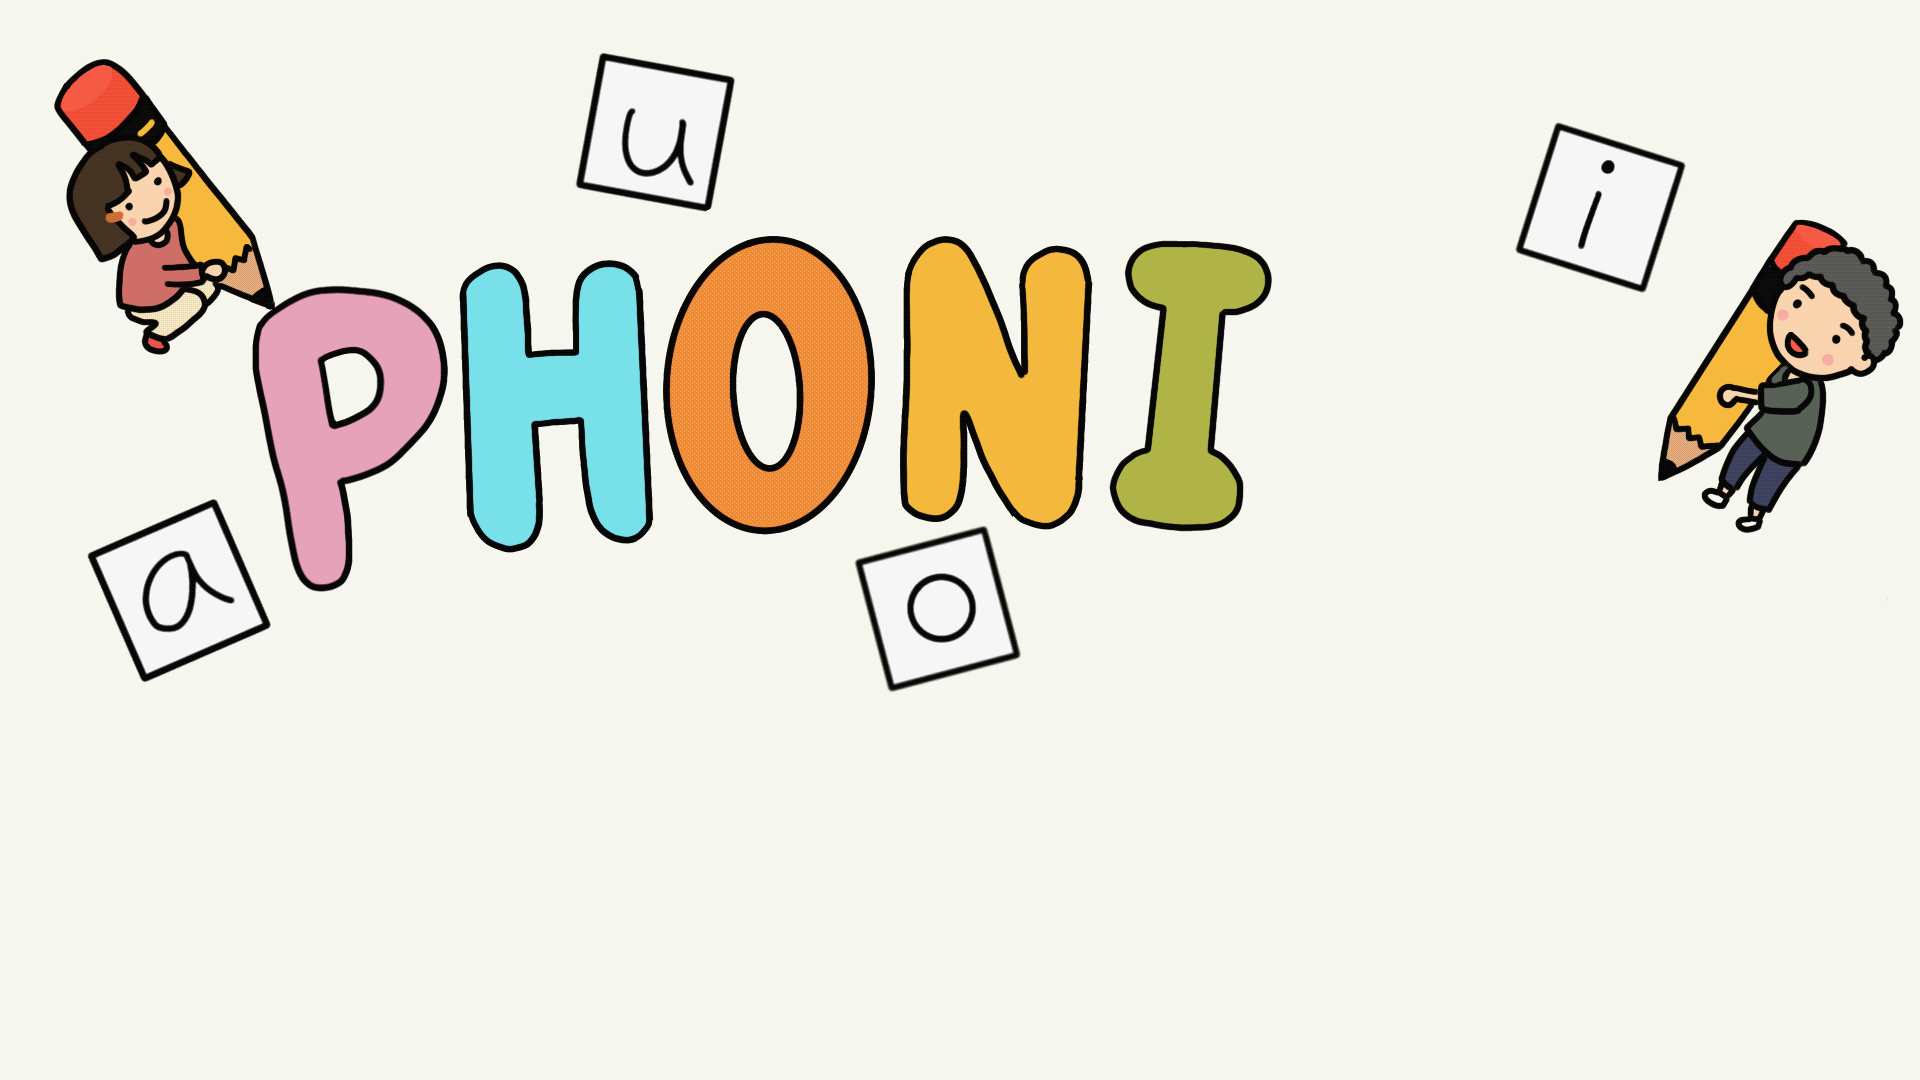 u
i
PHONI
a
o